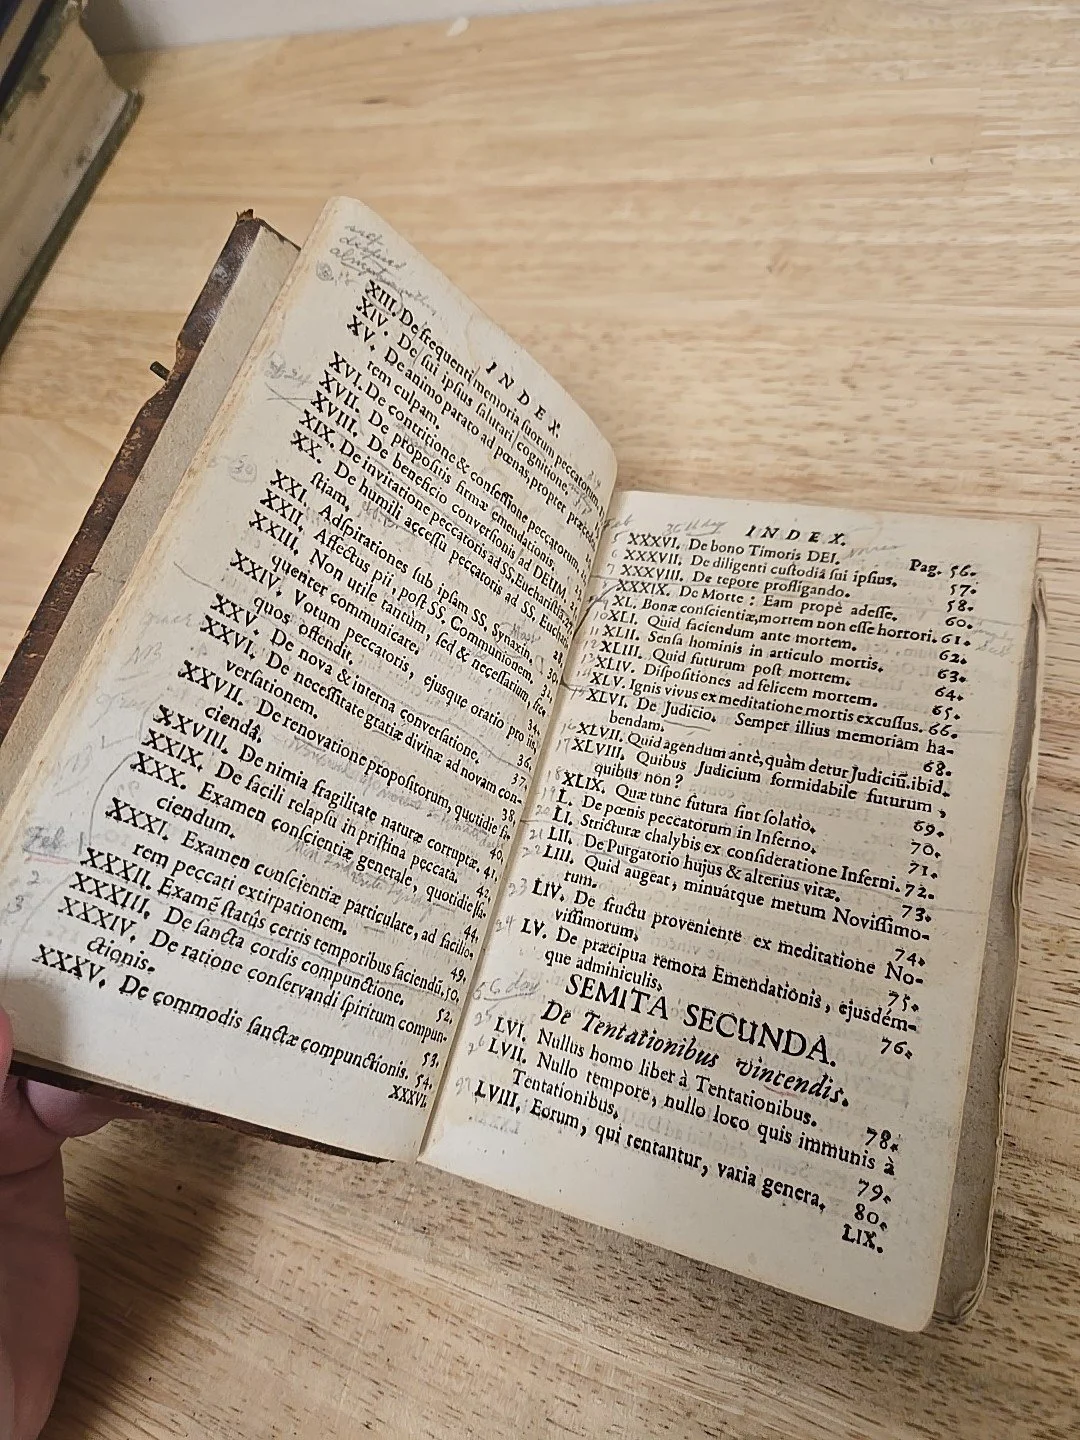 INDEX.
XIII. De frequenti memoria suorum peccatorum,
XIV. De sui ipsius salutari cognitione.
XV. De animo parato ad pœnas, propter præceden-
rem culpam.
XVI. De contritione & confessione peccatorum.
XVII. De propositis firmæ emendationis.
XVIII. De beneficio conversionis ad DEUM.
XIX. De invitatione peccatoris ad SS. Eucharistiã.
XX. De humili accessu peccatoris ad SS. Euchari-
stiam.
XXI. Adspirationes sub ipsam SS. Synaxin.
XXII. Affectus pii, post SS. Communionem.
XXIII. Non utile tantùm, sed & necessarium, fre-
quenter communicare.
XXIV. Votum peccatoris, ejusque oratio pro iis,
quos offendit. 34.
XXV. De nova & interna conversatione. 36.
XXVI. De necessitate gratiæ divinæ ad novam con-
versationem. 37.
XXVII. De renovatione propositorum, quotidie fa-
ciendâ. 38.
XXVIII. De nimia fragilitate naturæ corruptæ. 40.
XXIX. De facili relapsu in pristina peccata. 41.
XXX. Examen conscientiæ generale, quotidie fa-
ciendum. 42.
XXXI. Examen conscientiæ particulare, ad facilio-
rem peccati extirpationem. 44.
XXXII. Examẽ statûs certis temporibus faciendũ. 50.
XXXIII. De sancta cordis compunctione. 52.
XXXIV. De ratione conservandi spiritum compun-
ctionis. 53.
XXXV. De commodis sanctæ compunctionis. 54.
XXXVI.
INDEX.
XXXVI. De bono Timoris DEI. Pag. 56.
XXXVII. De diligenti custodiâ sui ipsius. 57.
XXXVIII. De tepore profligando. 58.
XXXIX. De Morte: Eam propè adesse. 60.
XL. Bonæ conscientiæ, mortem non esse horrori. 61.
XLI. Quid faciendum ante mortem. 62.
XLII. Sensa hominis in articulo mortis. 63.
XLIII. Quid futurum post mortem. 64.
XLIV. Dispositiones ad felicem mortem. 65.
XLV. Ignis vivus ex meditatione mortis excussus. 66.
XLVI. De Judicio. Semper illius memoriam ha-
bendam. 68.
XLVII. Quid agendum antè, quàm detur Judiciũ. ibid.
XLVIII. Quibus Judicium formidabile futurum,
quibus non? 69.
XLIX. Quæ tunc futura sint solatio. 70.
L. De pœnis peccatorum in Inferno. 71.
LI. Stricturæ chalybis ex consideratione Inferni. 72.
LII. De Purgatorio hujus & alterius vitæ. 73.
LIII. Quid augeat, minuátque metum Novissimo-
rum. 74.
LIV. De fructu proveniente ex meditatione No-
vissimorum. 75.
LV. De præcipua remora Emendationis, ejusdém-
que adminiculis. 76.
SEMITA SECUNDA.
De Tentationibus vincendis.
LVI. Nullus homo liber à Tentationibus. 78.
LVII. Nullo tempore, nullo loco quis immunis à
Tentationibus. 79.
LVIII. Eorum, qui tentantur, varia genera. 80.
LIX.